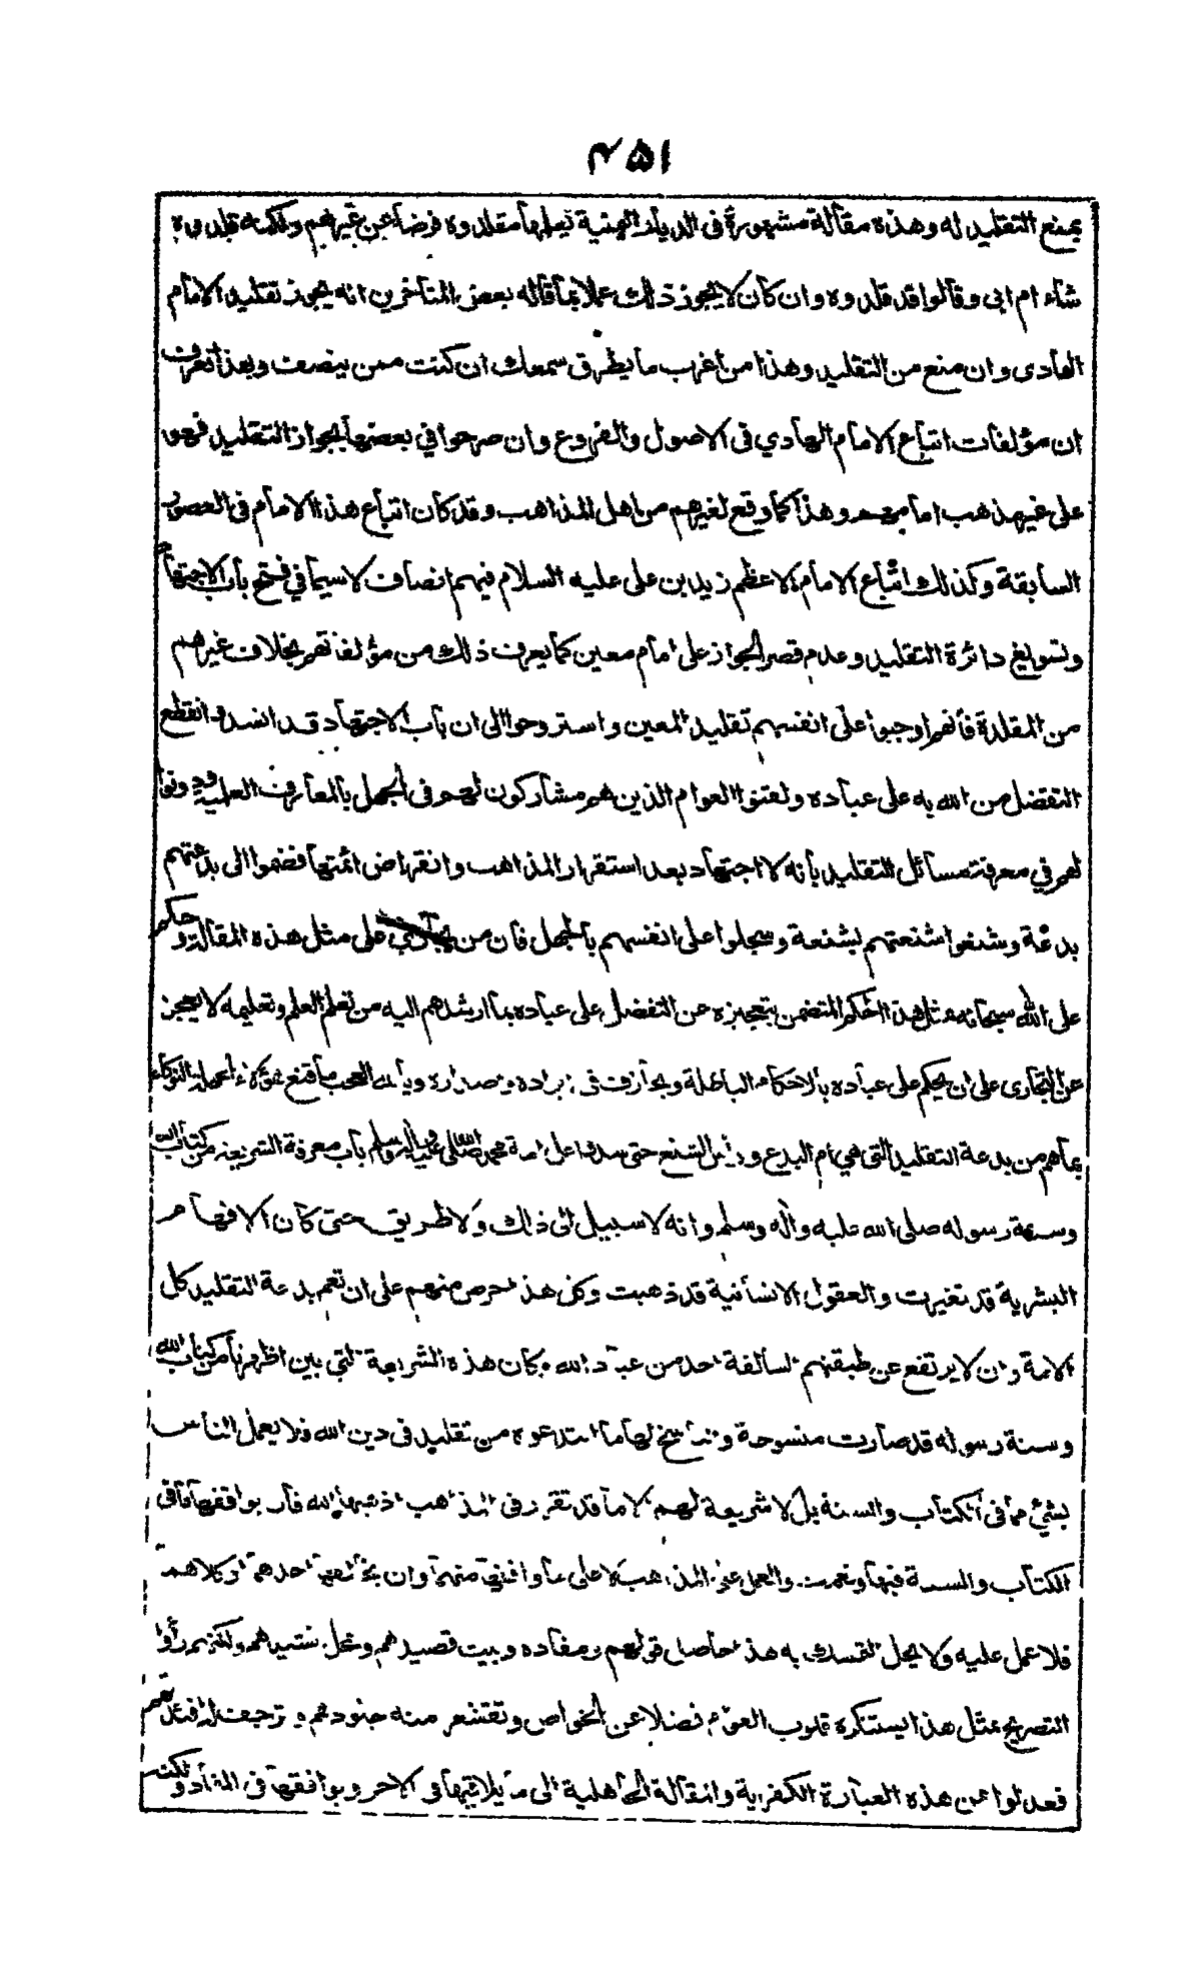 ۴۵۱
بمنع التقليد له وهذه مقالة مشهورة فى الديار اليمنية يعلمها مقلدوه فرضا عن غيرهم ولكنه قلدوه
شاء ام ابى وقالوا قد قلدوه وان كان لا يجوز ذلك عملا بما قاله بعض المتأخرين انه يجوز تقليد الامام
الهادى وان منع من التقليد وهذا من اغرب ما يطرق سمعك ان كنت ممن ينصف وبهذا تعرف
ان مؤلفات اتباع الامام الهادي فى الاصول والفروع وان صرحوا في بعضها بجواز التقليد فهو
على غير مذهب امامهم وهذا كما وقع لغيرهم من اهل المذاهب وقد كان اتباع هذا الامام فى العصور
السابقة وكذلك اتباع الامام الاعظم زيد بن على عليه السلام فيهم انصاف لا سيما في فتح باب الاجتهاد
وتسويغ دائرة التقليد وعدم قصر الجواز على امام معين كما يعرف ذلك من مؤلفاتهم بخلاف غيرهم
من المقلدة فانهم اوجبوا على انفسهم تقليد المعين واستروحوا الى ان باب الاجتهاد قد انسد وانقطع
التفضل من الله به على عباده ولقنوا العوام الذين هم مشاركون لهم فى الجهل بالمعارف العلمية ودونوا
لهم في معرفة مسائل التقليد بانه لا اجتهاد بعد استقرار المذاهب وانقراض ائمتها فضموا الى بدعتهم
بدعة وشنعوا شنعتهم بشنعة وسجلوا على انفسهم بالجهل فان من يجارى على مثل هذه المقالة وحكم
على الله سبحانه بمثل هذا الحكم المتضمن بتعجيزه عن التفضل على عباده بما ارشدهم اليه من تعلم العلم وتعليمه لا يعجز
عن التجارى على ان يحكم على عباده بالاحكام الباطلة ويجازف فى ايراده واصداره ويالله العجب ما قنع هؤلاء الجهلة النوكاء
بما هم من بدعة التقليد التى هي ام البدع وراس الشنع حتى سدوا على امة محمد صلى الله عليه وآله وسلم باب معرفة الشريعة من كتاب الله
وسنة رسوله صلى الله عليه وآله وسلم وانه لا سبيل الى ذلك ولا طريق حتى كأن الافهام
البشرية قد تغيرت والعقول الانسانية قد ذهبت وكل هذا حرص منهم على ان تعم بدعة التقليد كل
الامة وان لا يرتفع عن طبقتهم السافلة احد من عباد الله وكان هذه الشريعة التى بين اظهرنا من كتاب الله
وسنة رسوله قد صارت منسوخة والناسخ لها ما ابتدعوه من تقليد فى دين الله فلا يعمل الناس
بشئ مما فى الكتاب والسنة بل لا شريعة لهم الا ما قد تقرر فى المذاهب اذهبها الله فان يوافقها ما فى
الكتاب والسنة فبها ونعمت والعمل على المذاهب لا على ما وافقها منهما وان يخالفها احدهما او كلاهما
فلا عمل عليه ولا يحل التمسك به هذا حاصل قولهم ومفاده وبيت قصيدهم ومحل نشيدهم ولكنهم رأوا
التصريح بمثل هذا يستنكره قلوب العوام فضلا عن الخواص وتقشعر منه جلودهم وترجف له افئدتهم
فعدلوا عن هذه العبارة الكفرية والمقالة الجاهلية الى ما يلاقيها فى الاخر ويوافقها فى المفاد ولكنه